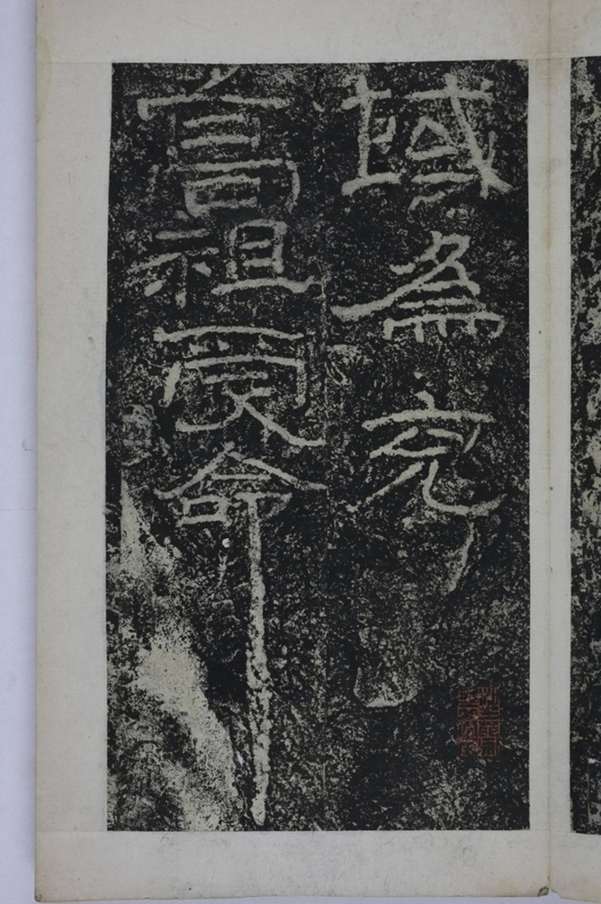 域為充
高祖受命